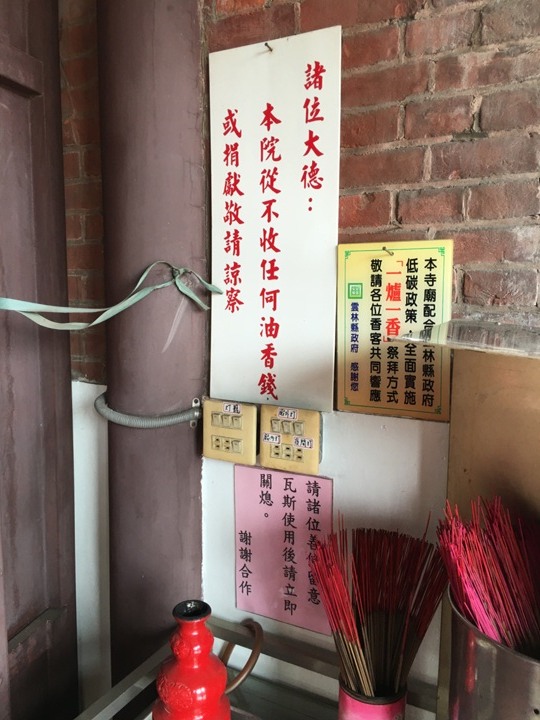 諸位大德：
本院從不收任何油香錢
或捐獻敬請諒察
本寺廟配合林縣政府
低碳政策，全面實施
「一爐一香」祭拜方式
敬請各位香客共同響應
雲林縣政府 感謝您
請諸位善信留意
瓦斯使用後請立即
關熄。
謝謝合作